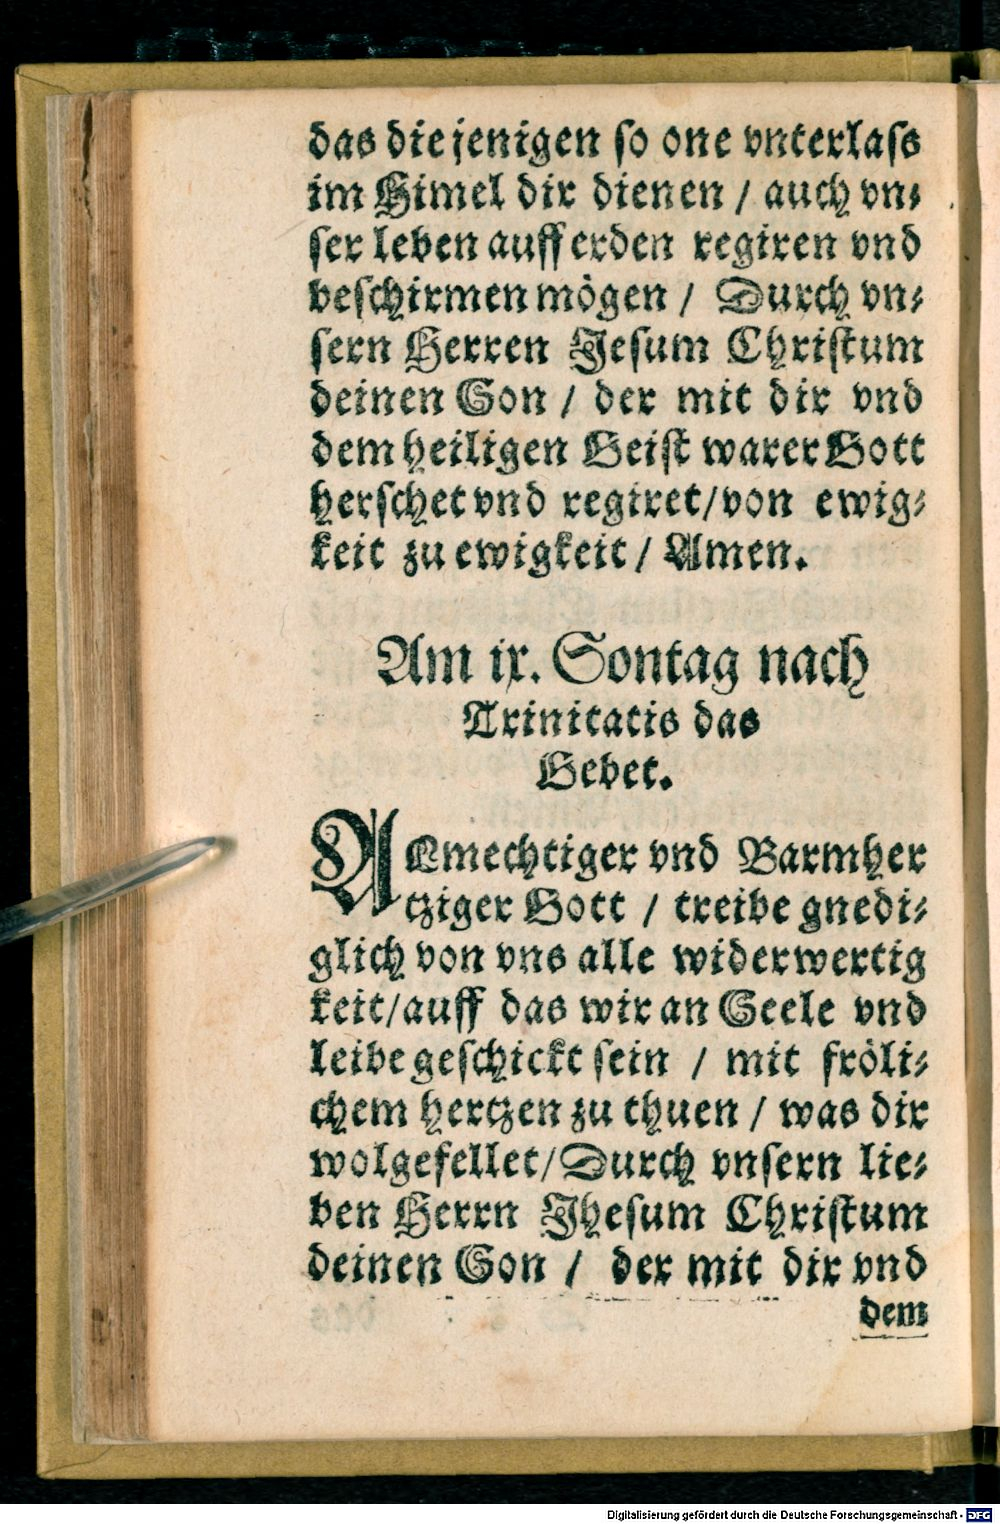 das die jenigen so one vnterlass
im Himel dir dienen / auch vn⸗
ser leben auff erden regiren vnd
beschirmen mögen / Durch vn⸗
sern Herren Jesum Christum
deinen Son / der mit dir vnd
dem heiligen Geist warer Gott
herschet vnd regiret/von ewig⸗
keit zu ewigkeit / Amen.
Am ix. Sontag nach
Trinitatis das
Gebet.
ALmechtiger vnd Barmher
tziger Gott / treibe gnedi⸗
glich von vns alle widerwertig
keit/auff das wir an Seele vnd
leibe geschickt sein / mit fröli⸗
chem hertzen zu thuen / was dir
wolgefellet/Durch vnsern lie⸗
ben Herrn Jhesum Christum
deinen Son / der mit dir vnd
dem
Digitalisierung gefördert durch die Deutsche Forschungsgemeinschaft - DFG